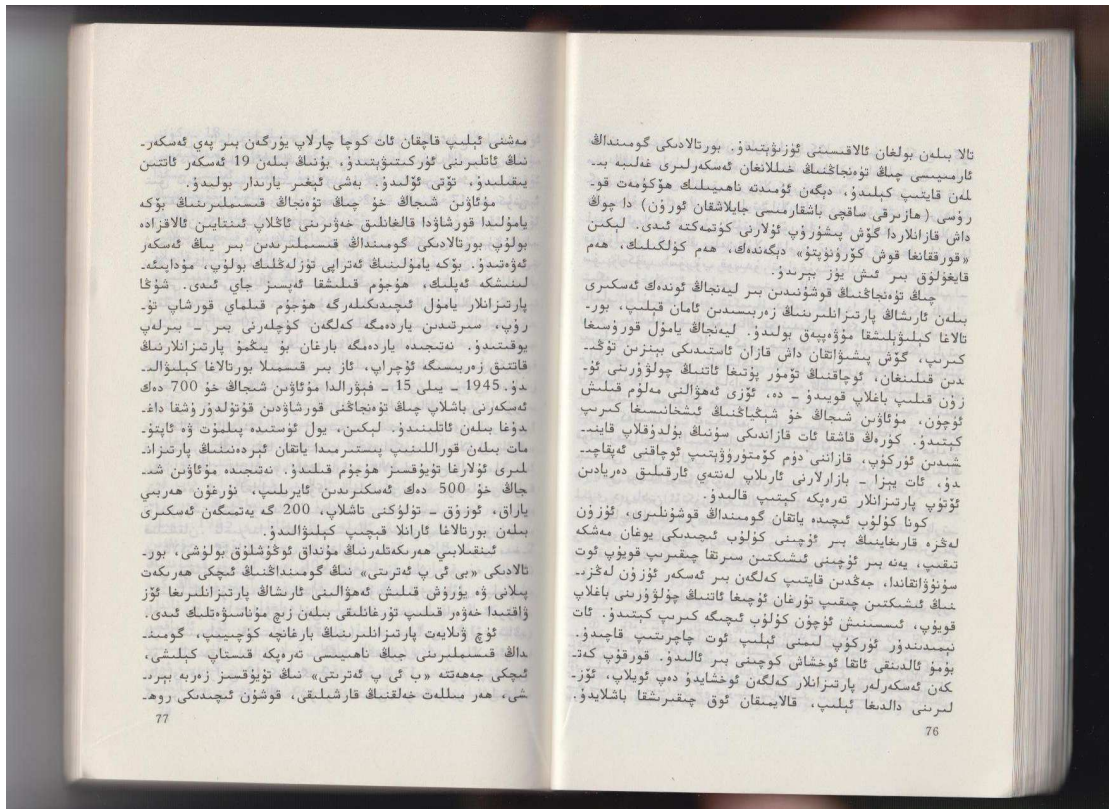 تالا بىلەن بولغان ئالاقىسىنى ئۈزىۋېتىدۇ. بورتالادىكى گومىنداڭ
ئارمىيىسى چىڭ تۈەنجاڭنىڭ خىللانغان ئەسكەرلىرى غەلىبە بىـ
لەن قايتىپ كېلىدۇ، دېگەن ئۈمىدتە ناھىيىلىك ھۆكۈمەت قوـ
رۇسى (ھازىرقى ساقچى باشقارمىسى جايلاشقان ئورۇن) دا چوڭ
داش قازانلاردا گۆش پىشۇرۇپ ئۇلارنى كۈتمەكتە ئىدى. لېكىن
«قورققانغا قوش كۆرۈنۈپتۇ» دېگەندەك، ھەم كۈلكىلىك، ھەم
قايغۇلۇق بىر ئىش يۈز بېرىدۇ.
چىڭ تۈەنجاڭنىڭ قوشۇنىدىن بىر ليەنجاڭ ئوندەك ئەسكىرى
بىلەن ئارىشاڭ پارتىزانلىرىنىڭ زەربىسىدىن ئامان قېلىپ، بورـ
تالاغا كېلىۋېلىشقا مۇۋەپپەق بولىدۇ. ليەنجاڭ يامۇل قورۇسىغا
كىرىپ، گۆش پىشىۋاتقان داش قازان ئاستىدىكى بېنزىن تۇڭىـ
دىن قىلىنغان، ئوچاقنىڭ تۆمۈر پۇتىغا ئاتنىڭ چولۋۇرىنى ئۇـ
زۇن قىلىپ باغلاپ قويىدۇ ـ دە، ئۆزى ئەھۋالنى مەلۇم قىلىش
ئۈچۈن، مۇئاۋىن شىجاڭ خۇ شېڭباڭنىڭ ئىشخانىسىغا كىرىپ
كېتىدۇ. كۈرەڭ قاشقا ئات قازاندىكى سۇنىڭ بۇلدۇقلاپ قاينىـ
شىدىن ئۈركۈپ، قازاننى دۈم كۆمتۈرۈۋېتىپ ئوچاقنى ئەپقاچىـ
دۇ، ئات يېزا ـ بازارلارنى ئارىلاپ لەنتەي ئارقىلىق دەريادىن
ئۆتۈپ پارتىزانلار تەرەپكە كېتىپ قالىدۇ.
كونا كۈلۈب ئىچىدە ياتقان گومىنداڭ قوشۇنلىرى، ئۇزۇن
لەڭزە قارىغاينىڭ بىر ئۈچىنى كۈلۈب ئىچىدىكى يوغان مەشكە
تىقىپ، يەنە بىر ئۈچىنى ئىشىكتىن سىرتقا چىقىرىپ قويۇپ ئوت
سۇنۇۋاتقاندا، جەڭدىن قايتىپ كەلگەن بىر ئەسكەر ئۇزۇن لەڭزىـ
نىڭ ئىشىكتىن چىقىپ تۇرغان ئۇچىغا ئاتنىڭ چۇلۋۇرىنى باغلاپ
قويۇپ، ئىسسىنىش ئۈچۈن كۈلۈب ئىچىگە كىرىپ كېتىدۇ. ئات
نېمىدىندۇر ئۈركۈپ لىمنى ئېلىپ ئوت چاچرىتىپ قاچىدۇ.
بۇمۇ ئالدىنقى ئاتقا ئوخشاش كوچىنى بىر ئالىدۇ. قورقۇپ كەتـ
كەن ئەسكەرلەر پارتىزانلار كەلگەن ئوخشايدۇ دەپ ئويلاپ، ئۆزـ
لىرىنى دالدىغا ئېلىپ، قالايمىقان ئوق چىقىرىشقا باشلايدۇ.
76
مەشنى ئېلىپ قاچقان ئات كوچا چارلاپ يۈرگەن بىر پەي ئەسكەرـ
نىڭ ئاتلىرىنى ئۈركىتىۋېتىدۇ، بۇنىڭ بىلەن 19 ئەسكەر ئاتتىن
يىقىلىدۇ، تۆتى ئۆلىدۇ. بەشى ئېغىر يارىدار بولىدۇ.
مۇئاۋىن شىجاڭ خۇ چىڭ تۈەنجاڭ قىسىملىرىنىڭ بۆكە
يامۇلىدا قورشاۋدا قالغانلىق خەۋىرىنى ئاڭلاپ ئىنتايىن ئالاقزادە
بولۇپ بورتالادىكى گومىنداڭ قىسىملىرىدىن بىر يىڭ ئەسكەر
ئەۋەتىدۇ. بۆكە يامۇلىنىڭ ئەتراپى تۈزلەڭلىك بولۇپ، مۇداپىئەـ
لىنىشكە ئەپلىك، ھۇجۇم قىلىشقا ئەپسىز جاي ئىدى. شۇڭا
پارتىزانلار يامۇل ئىچىدىكىلەرگە ھۇجۇم قىلماي قورشاپ تۇـ
رۇپ، سىرتىدىن ياردەمگە كەلگەن كۈچلەرنى بىر ـ بىرلەپ
يوقىتىدۇ. نەتىجىدە ياردەمگە بارغان بۇ يىڭمۇ پارتىزانلارنىڭ
قاتتىق زەربىسىگە ئۇچراپ، ئاز بىر قىسمىلا بورتالاغا كېلىۋالىـ
دۇ. 1945 ـ يىلى 15 ـ فېۋرالدا مۇئاۋىن شىجاڭ خۇ 700 دەك
ئەسكەرنى باشلاپ چىڭ تۈەنجاڭنى قورشاۋدىن قۇتۇلدۇرۇشقا داغـ
دۇغا بىلەن ئاتلىنىدۇ. لېكىن، يول ئۈستىدە پىلىمۇت ۋە ئاپتوـ
مات بىلەن قوراللىنىپ پىستىرمىدا ياتقان ئېبرەدىنىنىڭ پارتىزانـ
لىرى ئۇلارغا تۇيۇقسىز ھۇجۇم قىلىدۇ. نەتىجىدە مۇئاۋىن شىـ
جاڭ خۇ 500 دەك ئەسكىرىدىن ئايرىلىپ، نۇرغۇن ھەربىي
ياراق، ئوزۇق ـ تۈلۈكنى تاشلاپ، 200 گە يەتمىگەن ئەسكىرى
بىلەن بورتالاغا ئارانلا قېچىپ كېلىۋالىدۇ.
ئىنقىلابىي ھەرىكەتلەرنىڭ مۇنداق ئوڭۇشلۇق بولۇشى، بورـ
تالادىكى «بى ئى پ ئەترىتى» نىڭ گومىنداڭنىڭ ئىچكى ھەرىكەت
پىلانى ۋە يۈرۈش قىلىش ئەھۋالىنى ئارىشاڭ پارتىزانلىرىغا ئۆز
ۋاقتىدا خەۋەر قىلىپ تۇرغانلىقى بىلەن زىچ مۇناسىۋەتلىك ئىدى.
ئۈچ ۋىلايەت پارتىزانلىرىنىڭ بارغانچە كۈچىيىپ، گومىنـ
داڭ قىسىملىرىنى جىڭ ناھىيىسى تەرەپكە قىستاپ كېلىشى،
ئىچكى جەھەتتە «ب ئى پ ئەترىتى» نىڭ تۇيۇقسىز زەربە بېرىـ
شى، ھەر مىللەت خەلقنىڭ قارشىلىقى، قوشۇن ئىچىدىكى روھـ
77